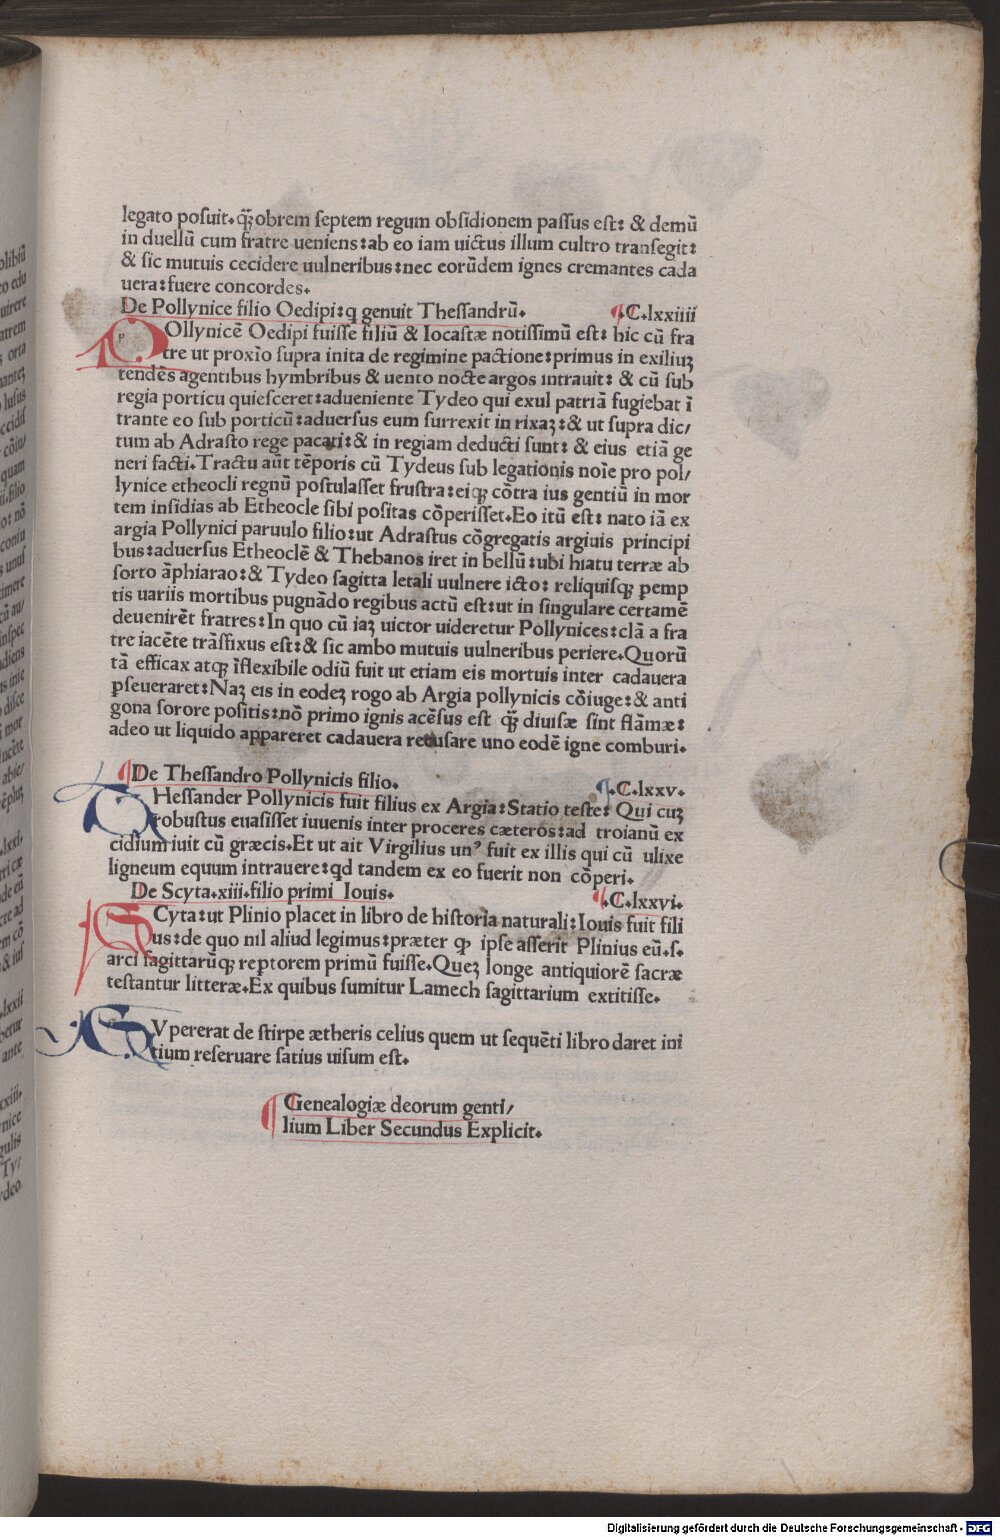 legato posuit.q̃ȝobrem septem regum obsidionem passus est: & demũ
in duellũ cum fratre ueniens:ab eo iam uictus illum cultro transegit:
& sic mutuis cecidere uulneribus:nec eorũdem ignes cremantes cada
uera:fuere concordes.
De Pollynice filio Oedipi:q genuit Thessandrũ. ¶.C.lxxiiii
POllynicẽ Oedipi fuisse filiũ & Iocastæ notissimũ est: hic cũ fra
tre ut proxĩo supra inita de regimine pactione:primus in exiliuȝ
tendẽs agentibus hymbribus & uento nocte argos intrauit: & cũ sub
regia porticu quiesceret:adueniente Tydeo qui exul patriã fugiebat ĩ
trante eo sub porticũ:aduersus eum surrexit in rixaȝ:& ut supra dic/
tum ab Adrasto rege pacati:& in regiam deducti sunt: & eius etiã ge
neri facti.Tractu aũt tẽporis cũ Tydeus sub legationis noĩe pro pol/
lynice etheocli regnũ postulasset frustra:eiqȝ cõtra ius gentiũ in mor
tem insidias ab Etheocle sibi positas cõperisset.Eo itũ est: nato iã ex
argia Pollynici paruulo filio:ut Adrastus cõgregatis argiuis principi
bus:aduersus Etheoclẽ & Thebanos iret in bellũ:ubi hiatu terræ ab
sorto ãphiarao:& Tydeo sagitta letali uulnere icto: reliquisqȝ pemp
tis uariis mortibus pugnãdo regibus actũ est:ut in singulare certamẽ
deuenirẽt fratres:In quo cũ iaȝ uictor uideretur Pollynices:clã a fra
tre iacẽte trãsfixus est:& sic ambo mutuis uulneribus periere.Quorũ
tã efficax atqȝ ĩflexibile odiũ fuit ut etiam eis mortuis inter cadauera
ꝑseueraret:Naȝ eis in eodeȝ rogo ab Argia pollynicis cõiuge:& anti
gona sorore positis:nõ primo ignis acẽsus est q̃ȝ diuisæ sint flãmæ:
adeo ut liquido appareret cadauera recusare uno eodẽ igne comburi.
¶De Thessandro Pollynicis filio. ¶.C.lxxv.
THessander Pollynicis fuit filius ex Argia:Statio teste: Qui cuȝ
robustus euasisset iuuenis inter proceres cæteros:ad troianũ ex
cidium iuit cũ græcis.Et ut ait Virgilius unꝰ fuit ex illis qui cũ ulixe
ligneum equum intrauere:qd tandem ex eo fuerit non cõperi.
De Scyta.xiii.filio primi Iouis. ¶.C.lxxvi.
SCyta:ut Plinio placet in libro de historia naturali:Iouis fuit fili
us:de quo nil aliud legimus:præter ꝙ ipse asserit Plinius eũ.s.
arci sagittarũqȝ reptorem primũ fuisse.Queȝ longe antiquiorẽ sacræ
testantur litteræ.Ex quibus sumitur Lamech sagittarium extitisse.
SVpererat de stirpe ætheris celius quem ut sequẽti libro daret ini
tium reseruare satius uisum est.
¶Genealogiæ deorum genti/
lium Liber Secundus Explicit.
Digitalisierung gefördert durch die Deutsche Forschungsgemeinschaft - DFG